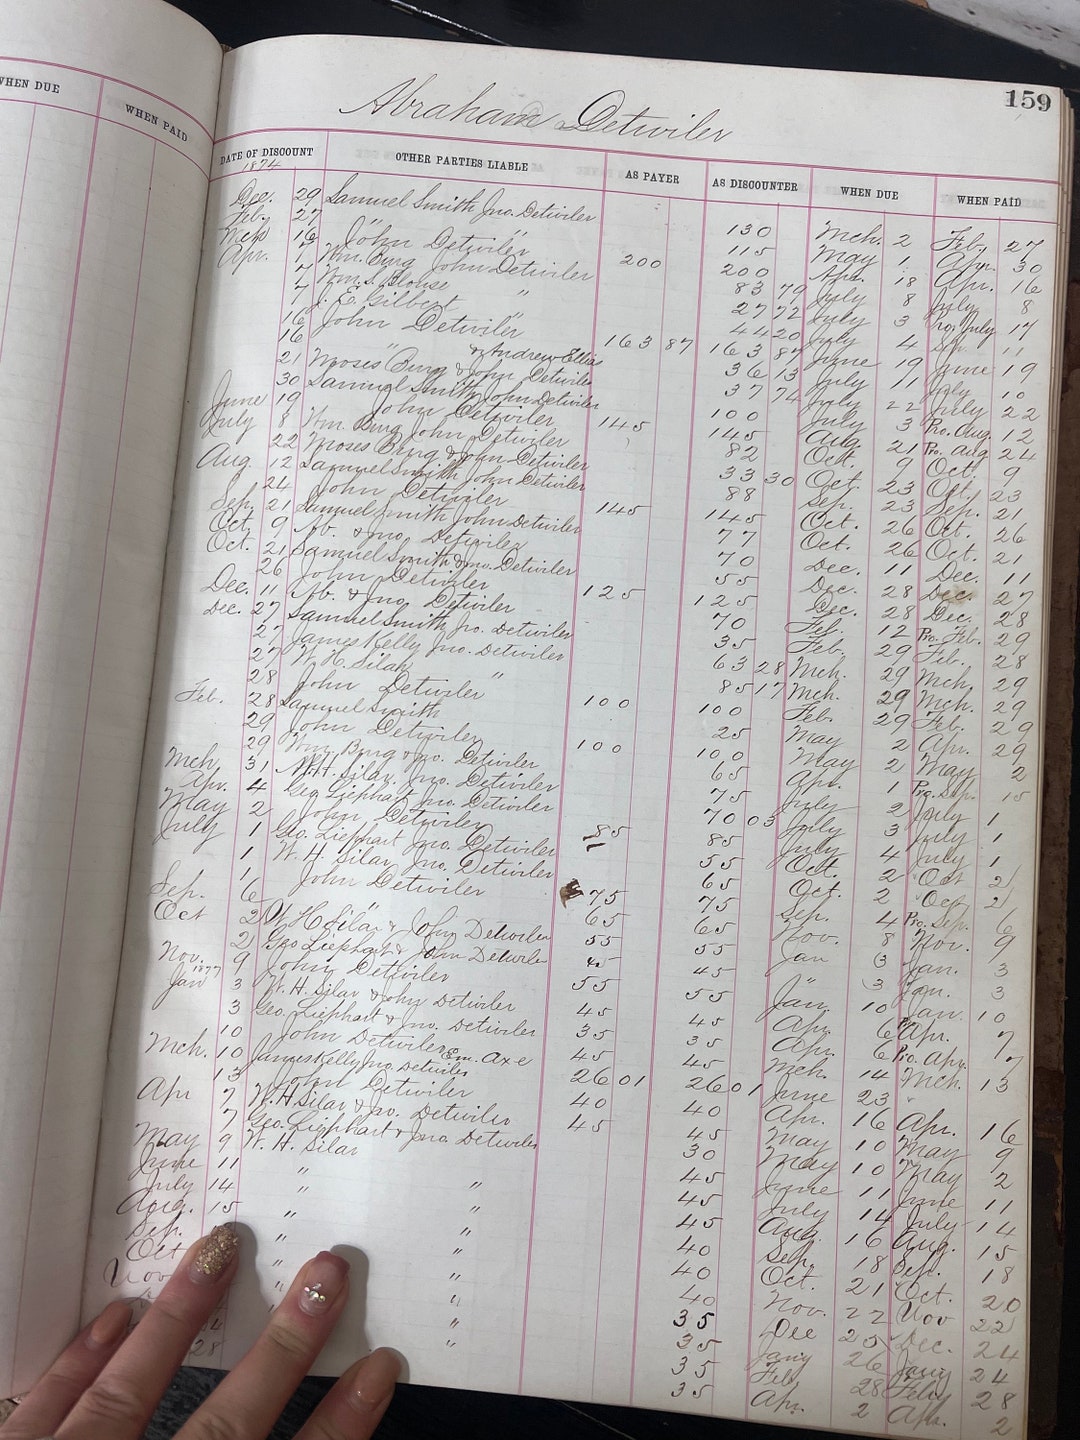 159
Abraham Detwiler
WHEN DUE WHEN PAID
DATE OF DISCOUNT OTHER PARTIES LIABLE AS PAYER AS DISCOUNTER WHEN DUE WHEN PAID
1874
Dec. 29 Samuel Smith Jno. Detwiler 130 Mch. 2 Feb. 27
Feb. 27 " " 115 May 1 Apr. 30
Mch 16 John Detwiler 200 200 Apr. 18 Apr. 16
Apr. 7 Wm. Burg John Detwiler 83 79 July 8 July 8
7 Wm. S. Blouse " 27 72 July 3 Pro. July 17
7 J. E. Gilbert " 44 20 July 4 11
16 John Detwiler 163 87 163 87 June 19 June 19
16 " & Andrew Ellias 36 13 July 11 July 10
21 Moses Burg & John Detwiler 37 74 July 22 July 22
30 Samuel Smith John Detwiler 100 July 3 Pro. Aug. 12
June 19 John Detwiler 145 145 Aug. 21 Pro. Aug 24
July 8 Wm. Burg John Detwiler 82 Oct. 9 Oct. 9
22 Moses Burg & John Detwiler 33 30 Oct. 23 Oct. 23
Aug. 12 Samuel Smith John Detwiler 88 Sep. 23 Sep. 21
24 John Detwiler 145 145 Oct. 26 Oct. 26
Sep. 21 Samuel Smith John Detwiler 77 Oct. 26 Oct. 21
Oct. 9 Ab. & Jno. Detwiler 70 Dec. 11 Dec. 11
Oct. 21 Samuel Smith & Jno. Detwiler 55 Dec. 28 Dec. 27
26 John Detwiler 125 125 Dec. 28 Dec. 28
Dec. 11 Ab. & Jno. Detwiler 70 Feb. 12 Pro. Feb. 29
Dec. 27 Samuel Smith Jno. Detwiler 35 Feb. 29 Feb. 28
27 James Kelly Jno. Detwiler 63 28 Mch. 29 Mch. 29
27 W. H. Silar " 85 17 Mch. 29 Mch. 29
28 John Detwiler 100 100 Feb. 29 Feb. 29
Feb. 28 Samuel Smith 25 May 2 Apr. 29
29 John Detwiler 100 100 May 2 May 2
29 Wm. Burg & Jno. Detwiler 65 Apr. 1 Pro. Sep. 15
Mch. 31 W. H. Silar, Jno. Detwiler 75 July 2 July 1
Apr. 4 Geo Liephart Jno. Detwiler 70 03 July 3 July 1
May 2 John Detwiler 85 85 July 4 July 1
July 1 Geo. Liephart Jno. Detwiler 55 Oct. 2 Oct 2
1 W. H. Silar Jno. Detwiler 65 Oct. 2 Oct 2
1 John Detwiler 75 75 Sep. 4 Pro. Sep. 6
Sep. 6 " " 65 65 Nov. 8 Nov. 9
Oct 2 W H Silar & John Detwiler 55 55 Jan 3 Jan. 3
2 Geo Liephart & John Detwiler 45 45 " 3 Jan. 3
Nov. 9 John Detwiler 55 55 Jan. 10 Jan. 10
1877
Jan 3 W. H. Silar & John Detwiler 45 45 Apr. 6 Apr. 7
3 Geo. Liephart & Jno. Detwiler 35 35 Apr. 6 Pro. Apr. 7
10 John Detwiler 45 45 Mch. 14 Mch. 13
10 James Kelly Jno. Detwiler Em. Axe 26 01 26 01 June 23
Mch. 13 John Detwiler 40 40 Apr. 16 Apr. 16
Apr 7 W. H Silar & Jno. Detwiler 45 45 May 10 May 9
7 Geo. Liephart & Jno Detwiler 30 May 10 May 2
May 9 W. H. Silar 45 June 11 June 11
June 11 " " 45 July 14 July 14
July 14 " " 45 Aug. 16 Aug. 15
Aug. 15 " " 40 Sep. 18 Sep. 18
Sep. " " 40 Oct. 21 Oct. 20
Oct " " 40 Nov. 22 Nov 22
Nov " " 35 Dec 25 Dec. 24
35 Jany 26 Jany 24
24 35 Feb 28 Feby 28
28 35 Apr. 2 Apr. 2